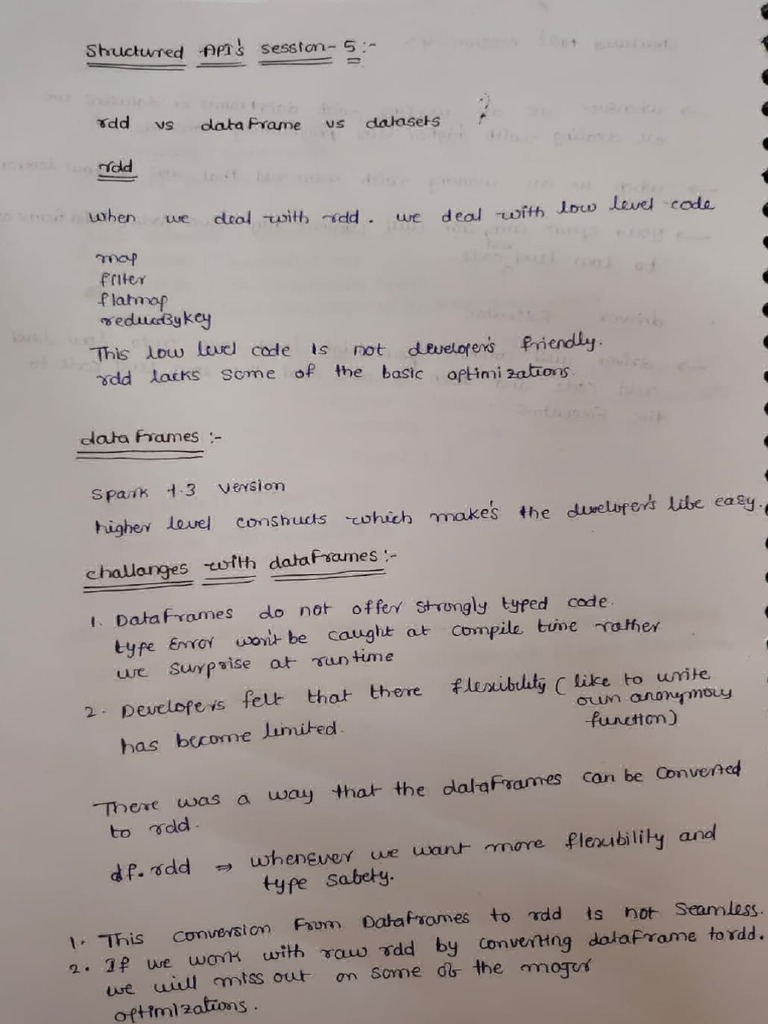 Structured API's session-5:-
rdd vs dataFrame vs datasets ?
rdd
when we deal with rdd. we deal with low level code
map
filter
flatmap
reduceBykey
This low level code is not developer's friendly.
rdd lacks some of the basic optimizations.
data Frames :-
Spark 1.3 version
higher level constructs which make's the developer's life easy.
challanges with dataFrames:-
1. DataFrames do not offer strongly typed code.
type Error won't be caught at compile time rather
we surprise at runtime
2. Developers felt that there flexibility (like to write
own anonymous
function)
has become limited.
There was a way that the dataFrames can be converted
to rdd.
df.rdd ⇒ whenever we want more flexibility and
type safety.
1. This conversion From DataFrames to rdd is not seamless.
2. If we work with raw rdd by converting dataframe to rdd.
we will miss out on some of the major
optimizations.